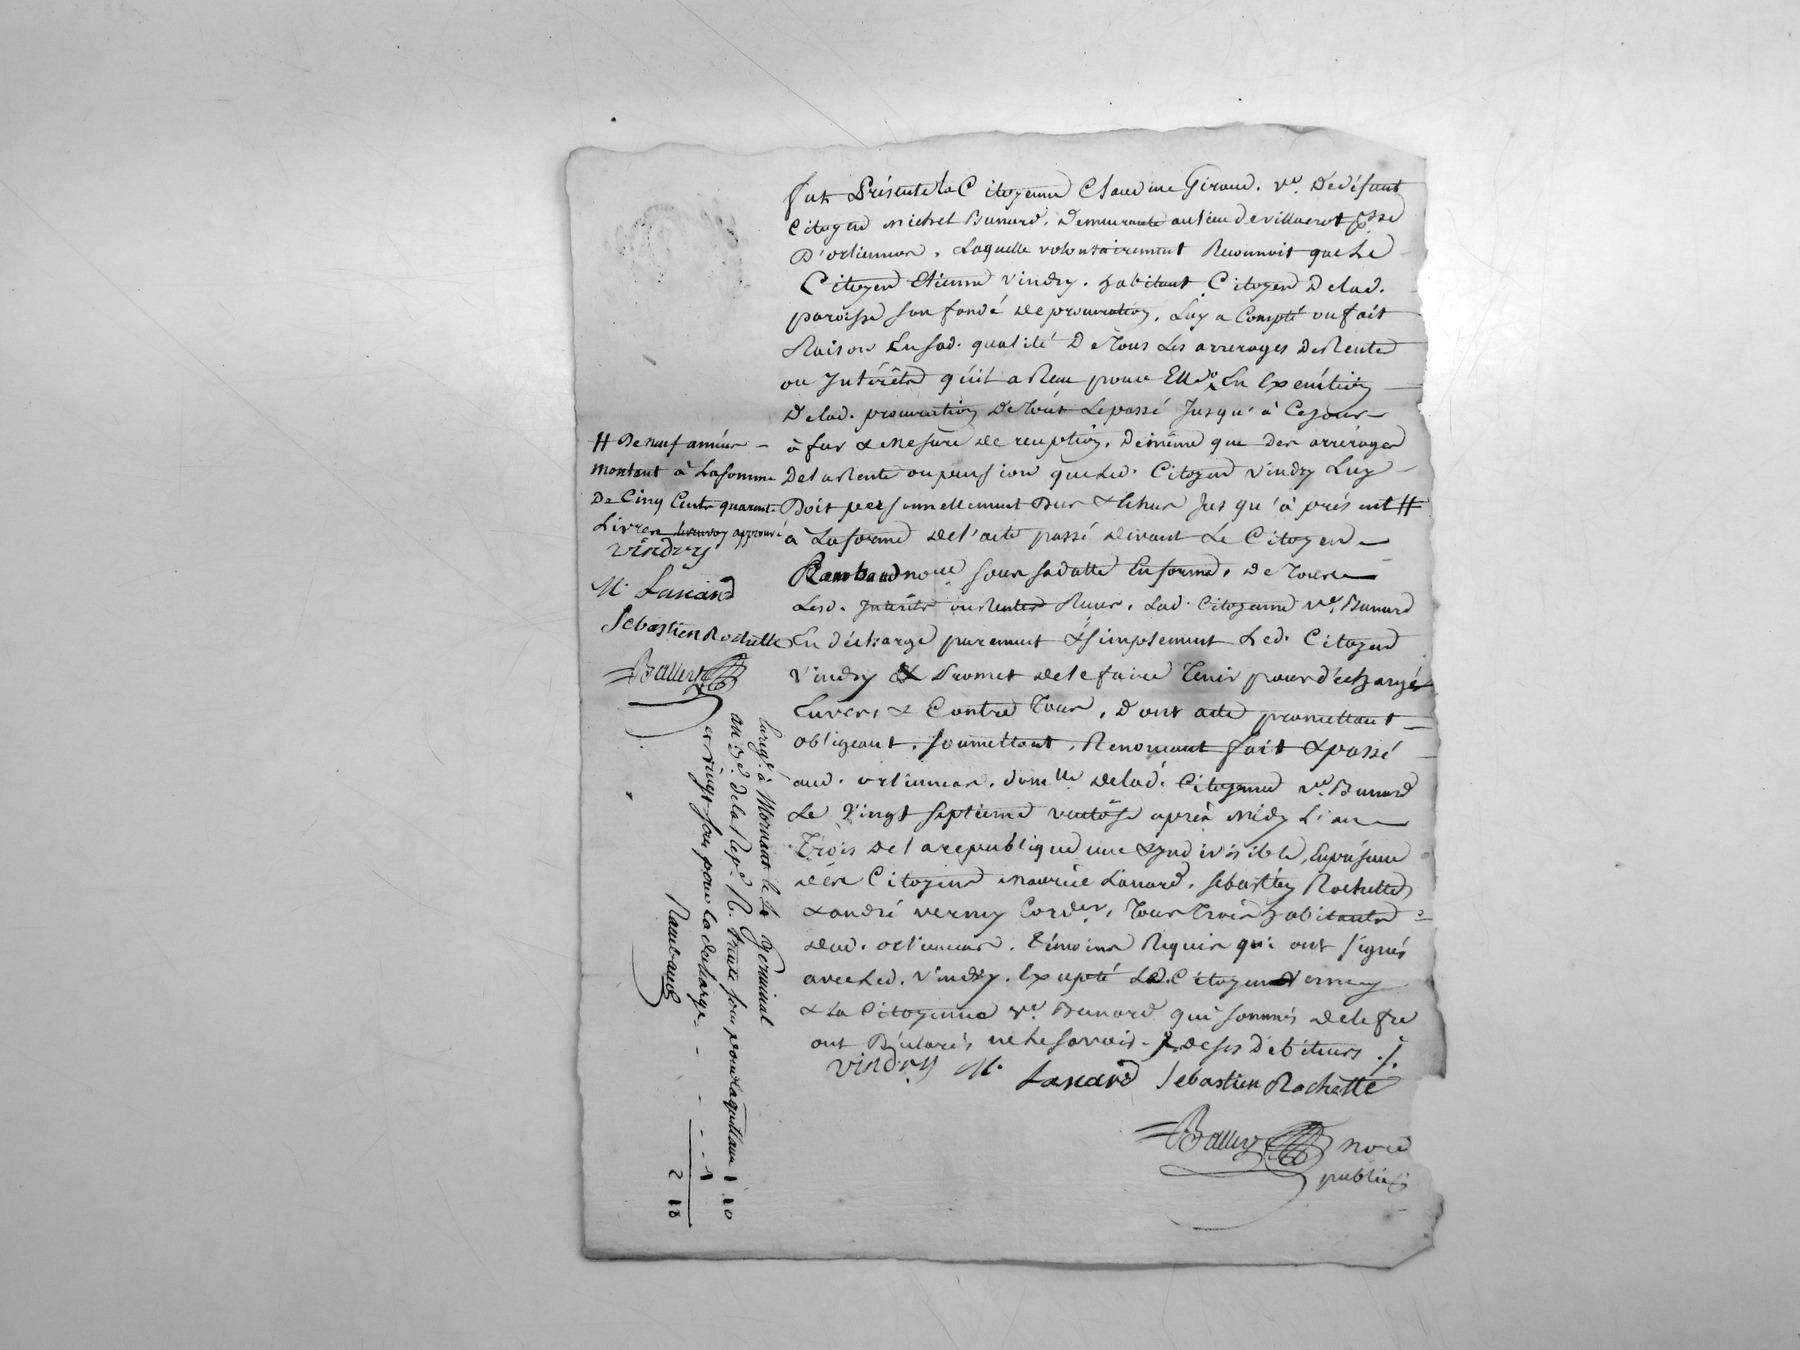 fut Présente la Citoyenne Claudine Giraud. ve. De défunt
Citoyen michel Bunard. Demeurante au lieu de villacrot psse
D'orliennas, Laquelle volontairement Reconnoit que Le
Citoyen Etienne vindry. habitant Citoyen De lad.
paroisse son fondé de procuration. Luy a Compté ou fait
Raison En sad. qualité De Tous Les arrerages De Rente
ou Intérêts qu'il a Reçu pour Elle En Exécution
De lad. procuration De Tout Le passé Jusqu'à Ce jour
à fur & mesure de reception. De même que Des arrérages
De la Rente ou pension que Led. Citoyen vindry Luy
Doit personnellement Dus & Echus Jusqu'à présent #
à La forme de l'acte passé devant Le Citoyen
Rambaud nore sous sa datte En forme, De Tous
Lesd. Intérêts ou Rentes Reçus. Lad. Citoyenne ve. Bunard
En décharge purement & simplement Led. Citoyen
vindry & Promet de le faire Tenir pour déchargé
Envers & Contre Tous, Dont acte promettant
obligeant, soumettant, Renonçant fait & passé
aud. orliennas, domlle de lad. Citoyenne ve. Bunard
Le Vingt septieme ventôse après midy L'an
Trois de la republique une & Indivisible, En présence
des Citoyens maurice Lanard, sebastien Rochette
& andré verney Corder, Tous Trois habitants
dud. orliennas. Témoins Requis qui ont signés
avec Led. vindry. Excepté Led. Citoyen Verney
& La Citoyenne ve. Bunard qui sommés de le fre
ont Déclarés ne le savoir. de ses Débiteurs ./.
vindry M. Lanard Sébastien Rochette
nore
public
# De neuf années
montant à La somme
De Cinq Cents quarante
Livres Le renvoy approuvé
vindry
M. Lanard
Sébastien Rochette
Enregé. à Mornant le 1e germinal
an 3e. de la Repe. R. trente sous pour la quittance 1 10
et vingt sous pour la décharge - - - 1
2 10
Rambaud